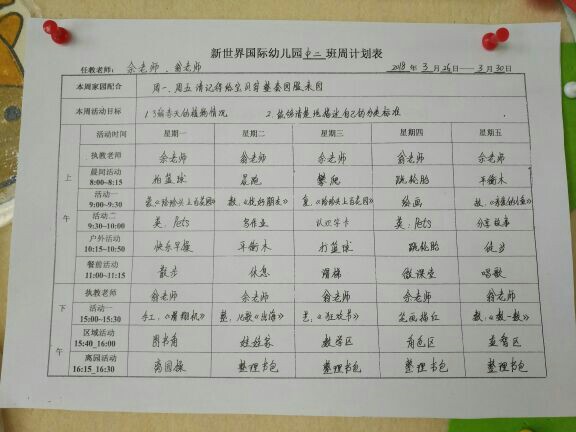 新世界国际幼儿园中二班周计划表
任教老师： 余老师、翁老师 2018年3月26日——3月30日
本周家园配合 周一、周五请记得给宝贝穿整套园服来园
本周活动目标 1.了解春天的植物情况 2.能够清楚地描述自己的分类标准
活动时间 星期一 星期二 星期三 星期四 星期五
上午
执教老师 余老师 翁老师 余老师 翁老师 余老师
晨间活动 拍篮球 晨跑 攀爬 跳轮胎 平衡木
8:00~8:15
活动一 绘画
9:00~9:30
活动二 英、Pets 写作业 认双字卡 英、Pets 分享故事
9:30~10:00
户外活动 快乐早操 平衡木 打篮球 跳轮胎 徒步
10:15~10:50
餐前活动 散步 休息 滑梯 微课堂 唱歌
11:00~11:15
下午
执教老师 翁老师 余老师 翁老师 余老师 翁老师
活动一 手工、 整、儿歌《出海》 艺、《狂欢节》 笔画描红 数、《数一数》
15:00~15:30
区域活动 图书角 娃娃家 数学区 角色区 益智区
15:40_16:00
离园活动 离园操 整理书包 整理书包 整理书包 整理书包
16:15_16:30